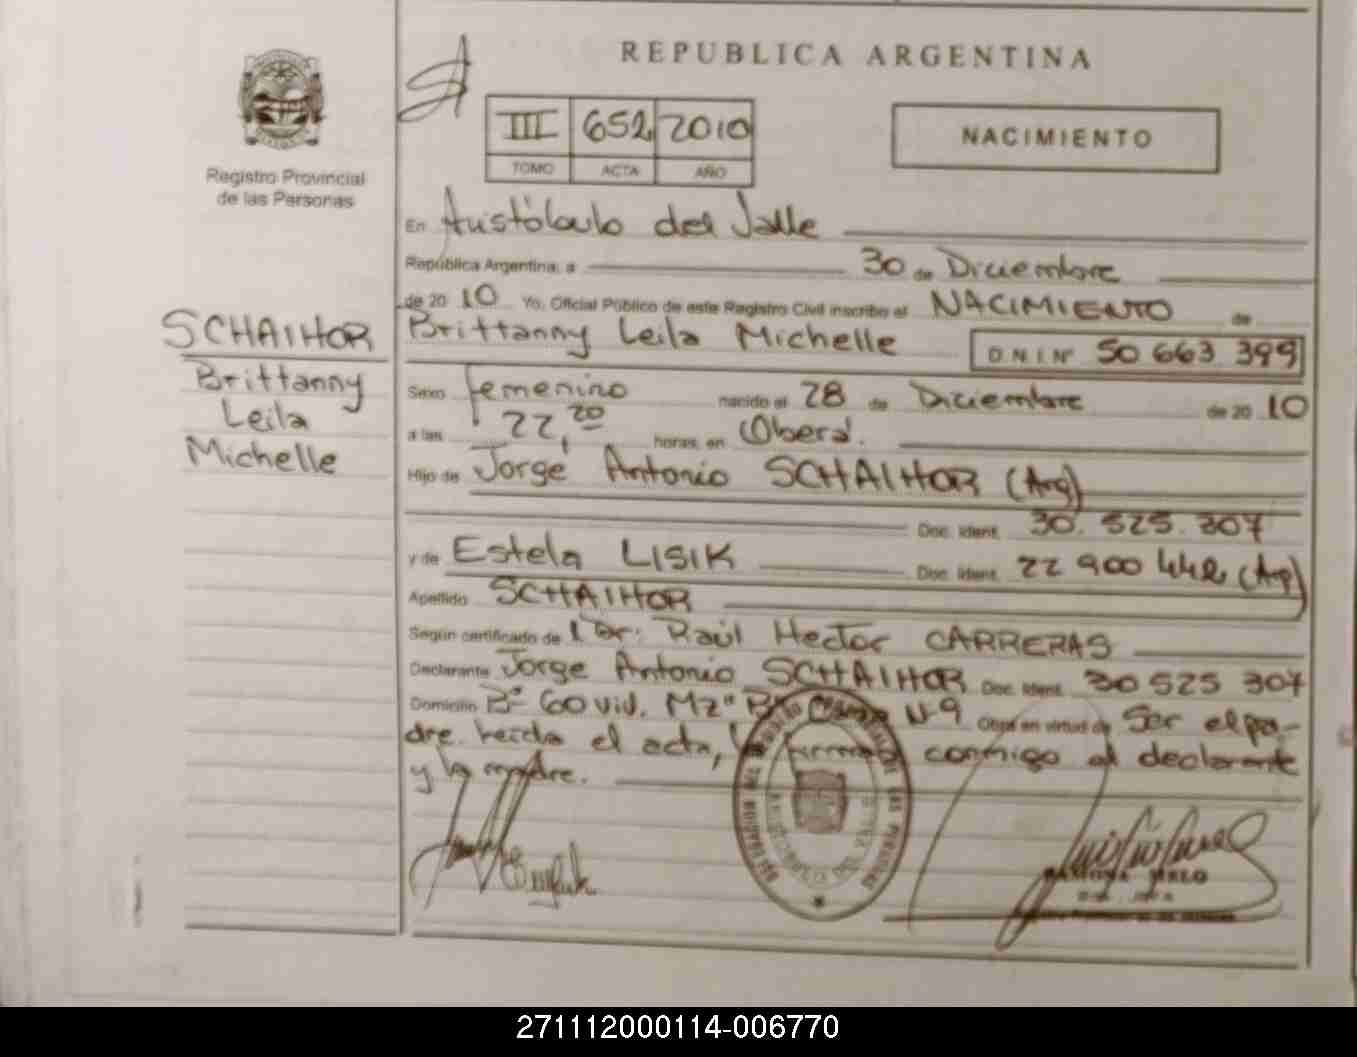 REPUBLICA ARGENTINA
III 652 2010
TOMO ACTA AÑO
NACIMIENTO
Registro Provincial
de las Personas
En Aristóbulo del Valle
República Argentina, a 30 de Diciembre
de 20 10 Yo, Oficial Público de este Registro Civil inscribo el NACIMIENTO de
SCHAIHOR
Brittanny
Leila
Michelle
Brittanny Leila Michelle D.N.I.Nº 50 663 399
Sexo femenino nacido el 28 de Diciembre de 20 10
a las 22,20 horas, en Oberá.
Hijo de Jorge Antonio SCHAIHOR (Arg)
Doc. Ident. 30.525.307
y de Estela LISIK Doc. Ident. 22 900 442 (Arg)
Apellido SCHAIHOR
Según certificado de Dr. Raúl Hector CARRERAS
Declarante Jorge Antonio SCHAIHOR Doc. Ident. 30 525 307
Domicilio Bº 60 viv. Mzª Nº9 Obra en virtud de Ser el pa-
dre. Leida el acta, conmigo el declarante
y la madre.
271112000114-006770